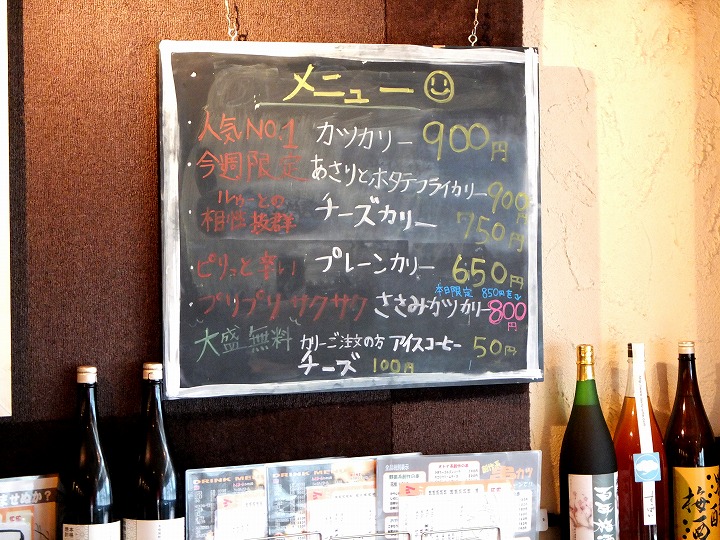 メニュー
人気NO.1 カツカリー 900円
今週限定 あさりとホタテフライカリー 900円
ルゥーとの相性抜群 チーズカリー 750円
ピリッと辛い プレーンカリー 650円
本日限定 850円を↓
プリプリ サクサク ささみカツカリー 800円
大盛無料 カリーご注文の方 アイスコーヒー 50円
チーズ 100円
DRINK MENU
DRINK ME
串カツ
ませぬか?
梅酒